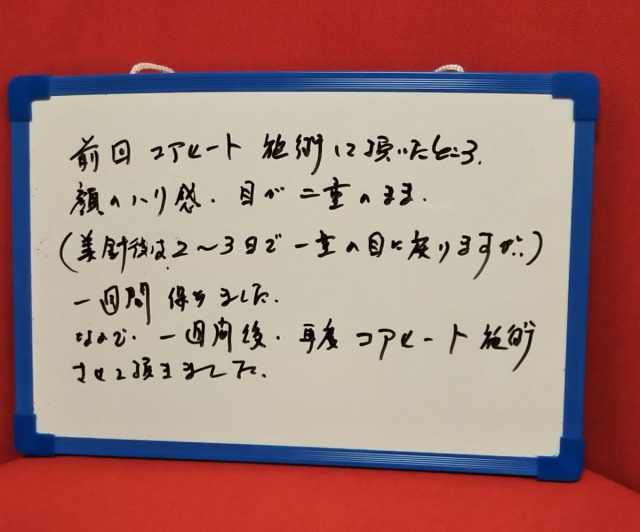 前回 コアヒート 施術して頂いたところ、
顔のハリ感・目が二重のまま、
(美針後は2～3日で一重の目に戻りますが…)
一週間 得ちました。
なので、一週間後、再度 コアヒート 施術
させて頂きました。